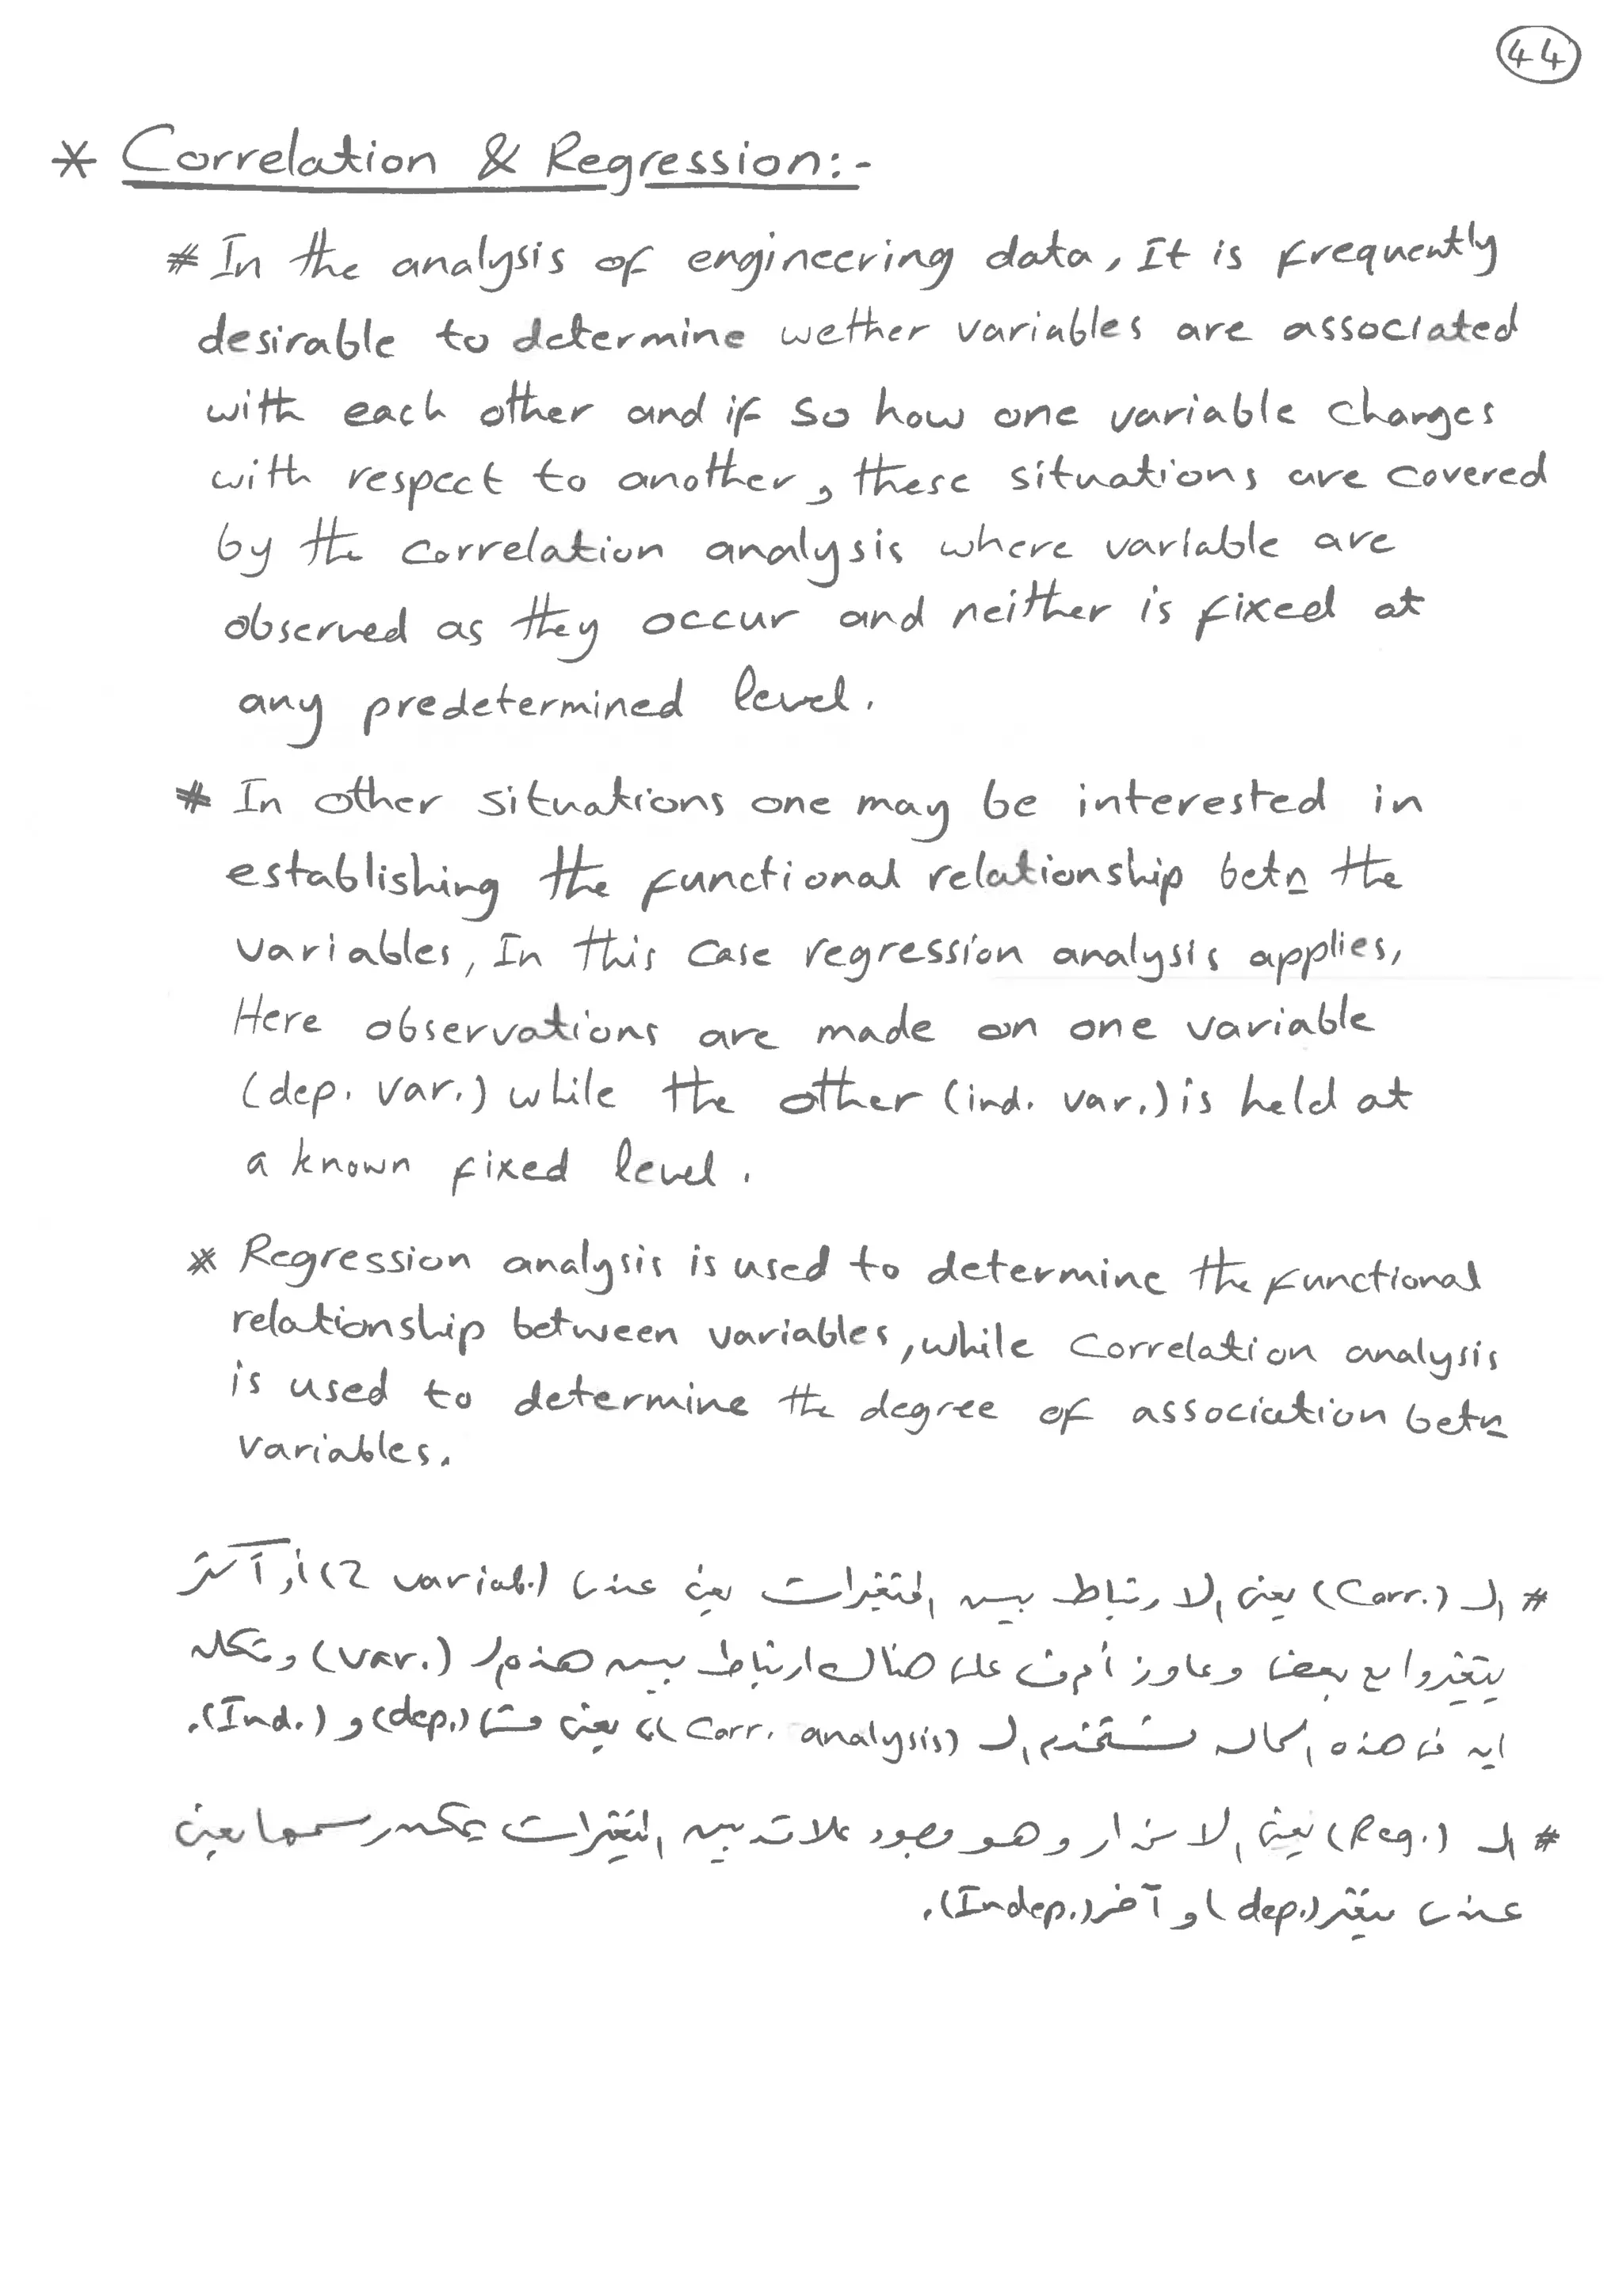 44
* Correlation & Regression:-
# In the analysis of engineering data, It is frequently
desirable to determine wether variables are associated
with each other and if so how one variable changes
with respect to another, these situations are covered
by the correlation analysis where variable are
observed as they occur and neither is fixed at
any predetermined level.
# In other situations one may be interested in
establishing the functional relationship betn the
variables, In this case regression analysis applies,
Here observations are made on one variable
(dep. var.) while the other (ind. var.) is held at
a known fixed level.
* Regression analysis is used to determine the functional
relationship between variables, while correlation analysis
is used to determine the degree of association betn
variables.
# الـ (Corr.) يعنى الارتباط بين المتغيرات يعنى عندى (2 variab.) أو أكثر
يتغيروا مع بعض وعاوز أعرف هل هناك ارتباط بين هذه الـ (var.) وشكله
ايه فى هذه الحاله نستخدم الـ (Corr. analysis) يعنى (dep.) و (Ind.).
# الـ (Reg.) يعنى الانحدار وهو وجود علاقه بين المتغيرات يمكن رسمها يعنى
عندى متغير (dep.) و آخر (Indep.).